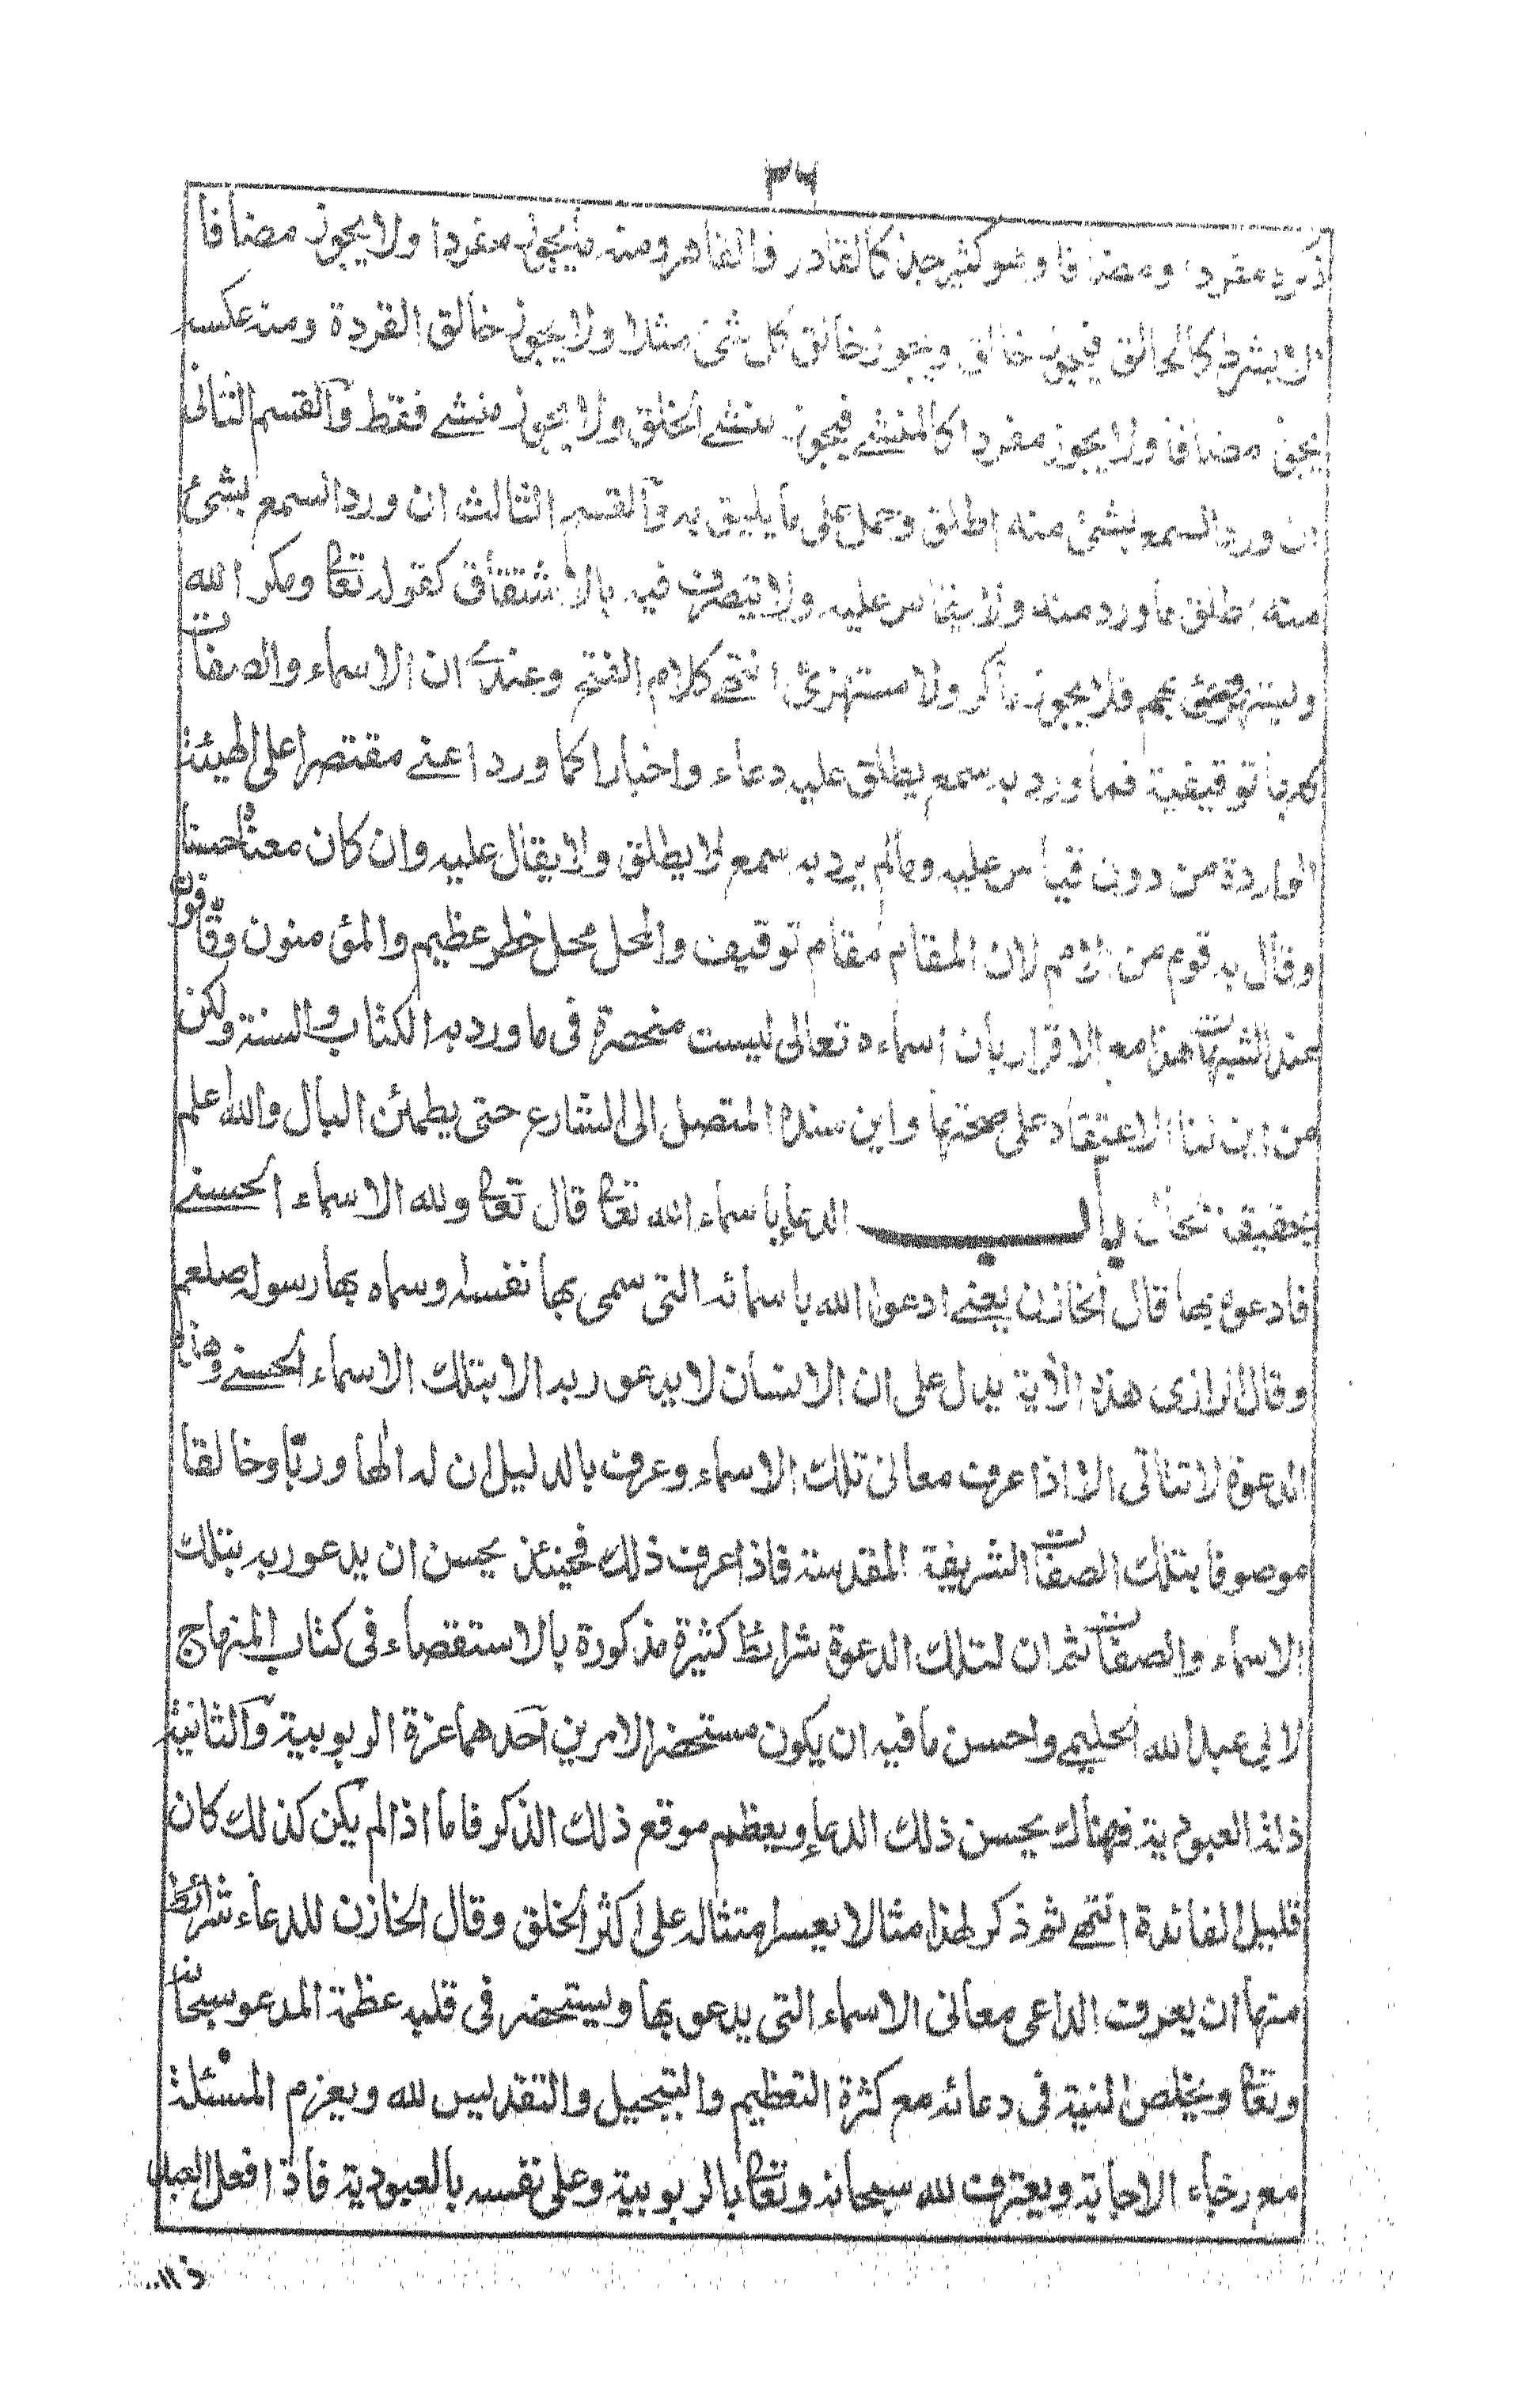 ٣٦
ذكره مفردا ومضافا وهو كثير جدا كالقادر فالقاهر ومنه ما يجوز مفردا ولا يجوز مضافا
الا بشرط كالخالق فيجوز خالق ويجوز خالق كل شئ مثلا ولا يجوز خالق القردة ومنه عكسه
يجوز مضافا ولا يجوز مفردا كالمنشئ فيجوز منشئ الخلق ولا يجوز منشئ فقط والقسم الثانى
ان ورد السمع بشئ منه اطلق وحمل على ما يليق به والقسم الثالث ان ورد السمع بشئ
منه اطلق ما ورد منه ولا يقاس عليه ولا يتصرف فيه بالاشتقاق كقوله تعا ومكر الله
ويستهزئ بهم فلا يجوز ماكر ولا مستهزئ انتهى كلام الفتح وعندى ان الاسماء والصفات
كلها توقيفية فما ورد به سمع يطلق عليه دعاء واخبارا كما ورد اعنى مقتصرا على الهيئة
الواردة من دون قياس عليه ومالم يرد به سمع لا يطلق ولا يقال عليه وان كان معناه حسنا
وقال به قوم من الامم لان المقام مقام توقيف والمحل محل خطر عظيم والمؤمنون وقافون
عند الشبهات هذا مع الاقرار بان اسماءه تعالى ليست منحصرة فى ما ورد به الكتاب والسنة ولكن
من اين لنا الاعتقاد على صحتها واين سنده المتصل الى الشارع حتى يطمئن البال والله اعلم
بحقيقة الحال باب الدعاء باسماء الله تعا قال تعا ولله الاسماء الحسنى
فادعوه بها قال الخازن يعنى ادعوا الله باسمائه التى سمى بها نفسه وسماه بها رسوله صلعم
وقال الرازى هذه الآية يدل على ان الانسان لا يدعو ربه الا بتلك الاسماء الحسنى وهذه
الدعوة لا تتاتى الا اذا عرف معانى تلك الاسماء وعرف بالدليل ان له الها وربا وخالقا
موصوفا بتلك الصفات الشريفة المقدسة فاذا عرف ذلك فحينئذ يحسن ان يدعو ربه بتلك
الاسماء والصفات ثم ان لتلك الدعوة شرائط كثيرة مذكورة بالاستقصاء فى كتاب المنهاج
لابى عبد الله الحليمى واحسن ما فيه ان يكون مستحضرا لامرين احدهما عزة الربوبية والثانية
ذلة العبودية فهناك يحسن ذلك الدعاء ويعظم موقع ذلك الذكر فاما اذا لم يكن كذلك كان
قليل الفائدة انتهى ثم ذكر لهذا مثالا يعسر امتثاله على اكثر الخلق وقال الخازن للدعاء شرائط
منها ان يعرف الداعى معانى الاسماء التى يدعو بها ويستحضر فى قلبه عظمة المدعو سبحانه
وتعا ويخلص النية فى دعائه مع كثرة التعظيم والتبجيل والتقديس لله ويعزم المسئلة
مع رجاء الاجابة ويعترف لله سبحانه وتعا بالربوبية وعلى نفسه بالعبودية فاذا فعل العبد
ذلك